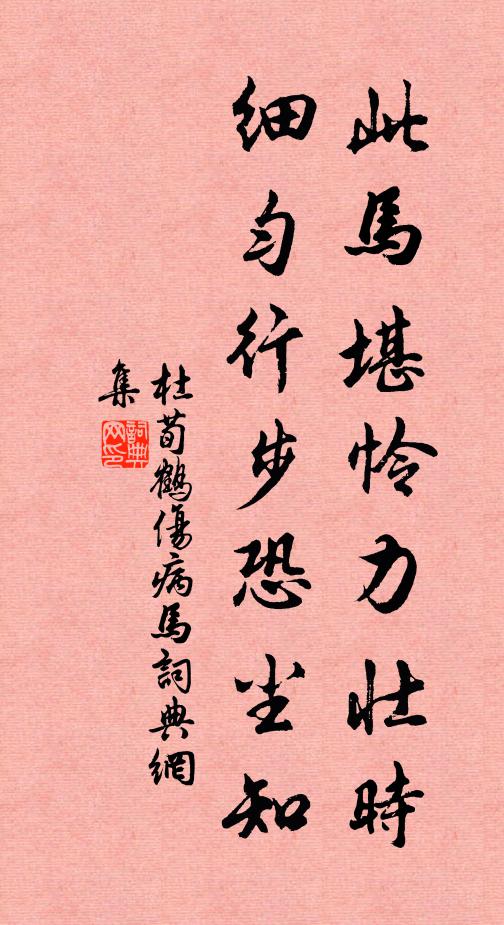 此馬堪怜力壮時
细匀行步恐尘知
杜荀鶴傷病馬詞典網
集
詞典网印